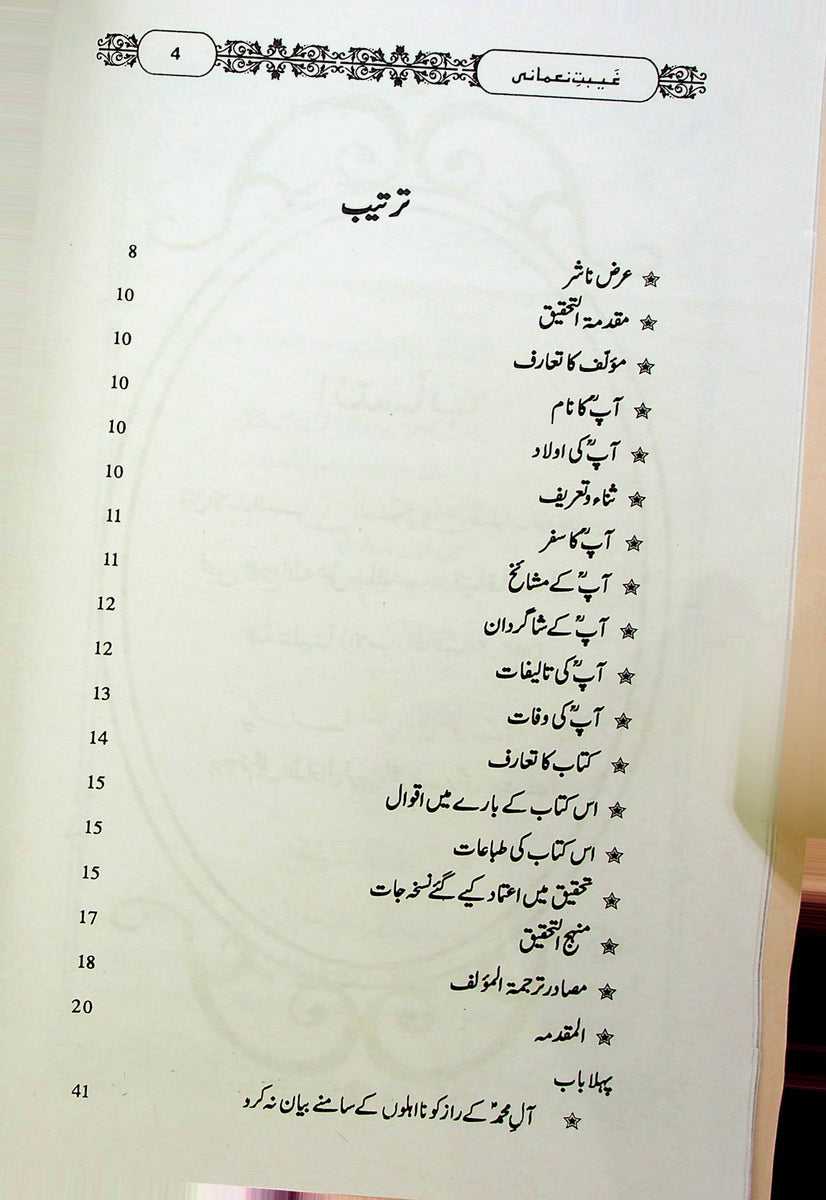 غَیبتِ نعمانی 4
ترتیب
عرض ناشر 8
مقدمۃ التحقیق 10
مؤلّف کا تعارف 10
آپؒ کا نام 10
آپؒ کی اولاد 10
ثناء وتعریف 10
آپؒ کا سفر 11
آپؒ کے مشائخ 11
آپؒ کے شاگردان 12
آپؒ کی تالیفات 12
آپؒ کی وفات 13
کتاب کا تعارف 14
اس کتاب کے بارے میں اقوال 15
اس کتاب کی طباعات 15
تحقیق میں اعتماد کیے گئے نسخہ جات 15
منہج التحقیق 17
مصادر ترجمۃ المؤلف 18
المقدمہ 20
پہلا باب
آلِ محمدؑ کے راز کو نااہلوں کے سامنے بیان نہ کرو 41